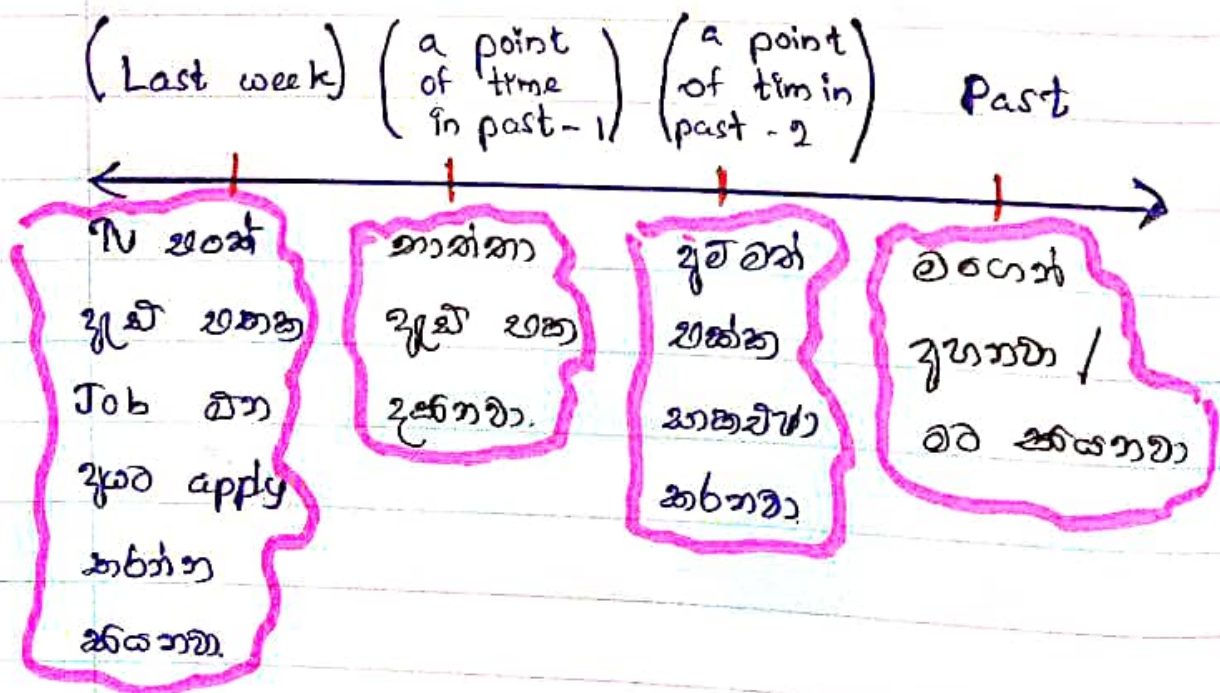 (Last week)
(a point
of time
in past - 1)
(a point
of tim in
past - 2)
Past
TV එකේ
ඇඩ් එකක
Job ඕන
අයට apply
කරන්න
කියනවා.
තාත්තා
ඇඩ් එක
දකිනවා.
අම්මත්
එක්ක
සාකච්ඡා
කරනවා
මගෙන්
අහනවා /
මට කියනවා